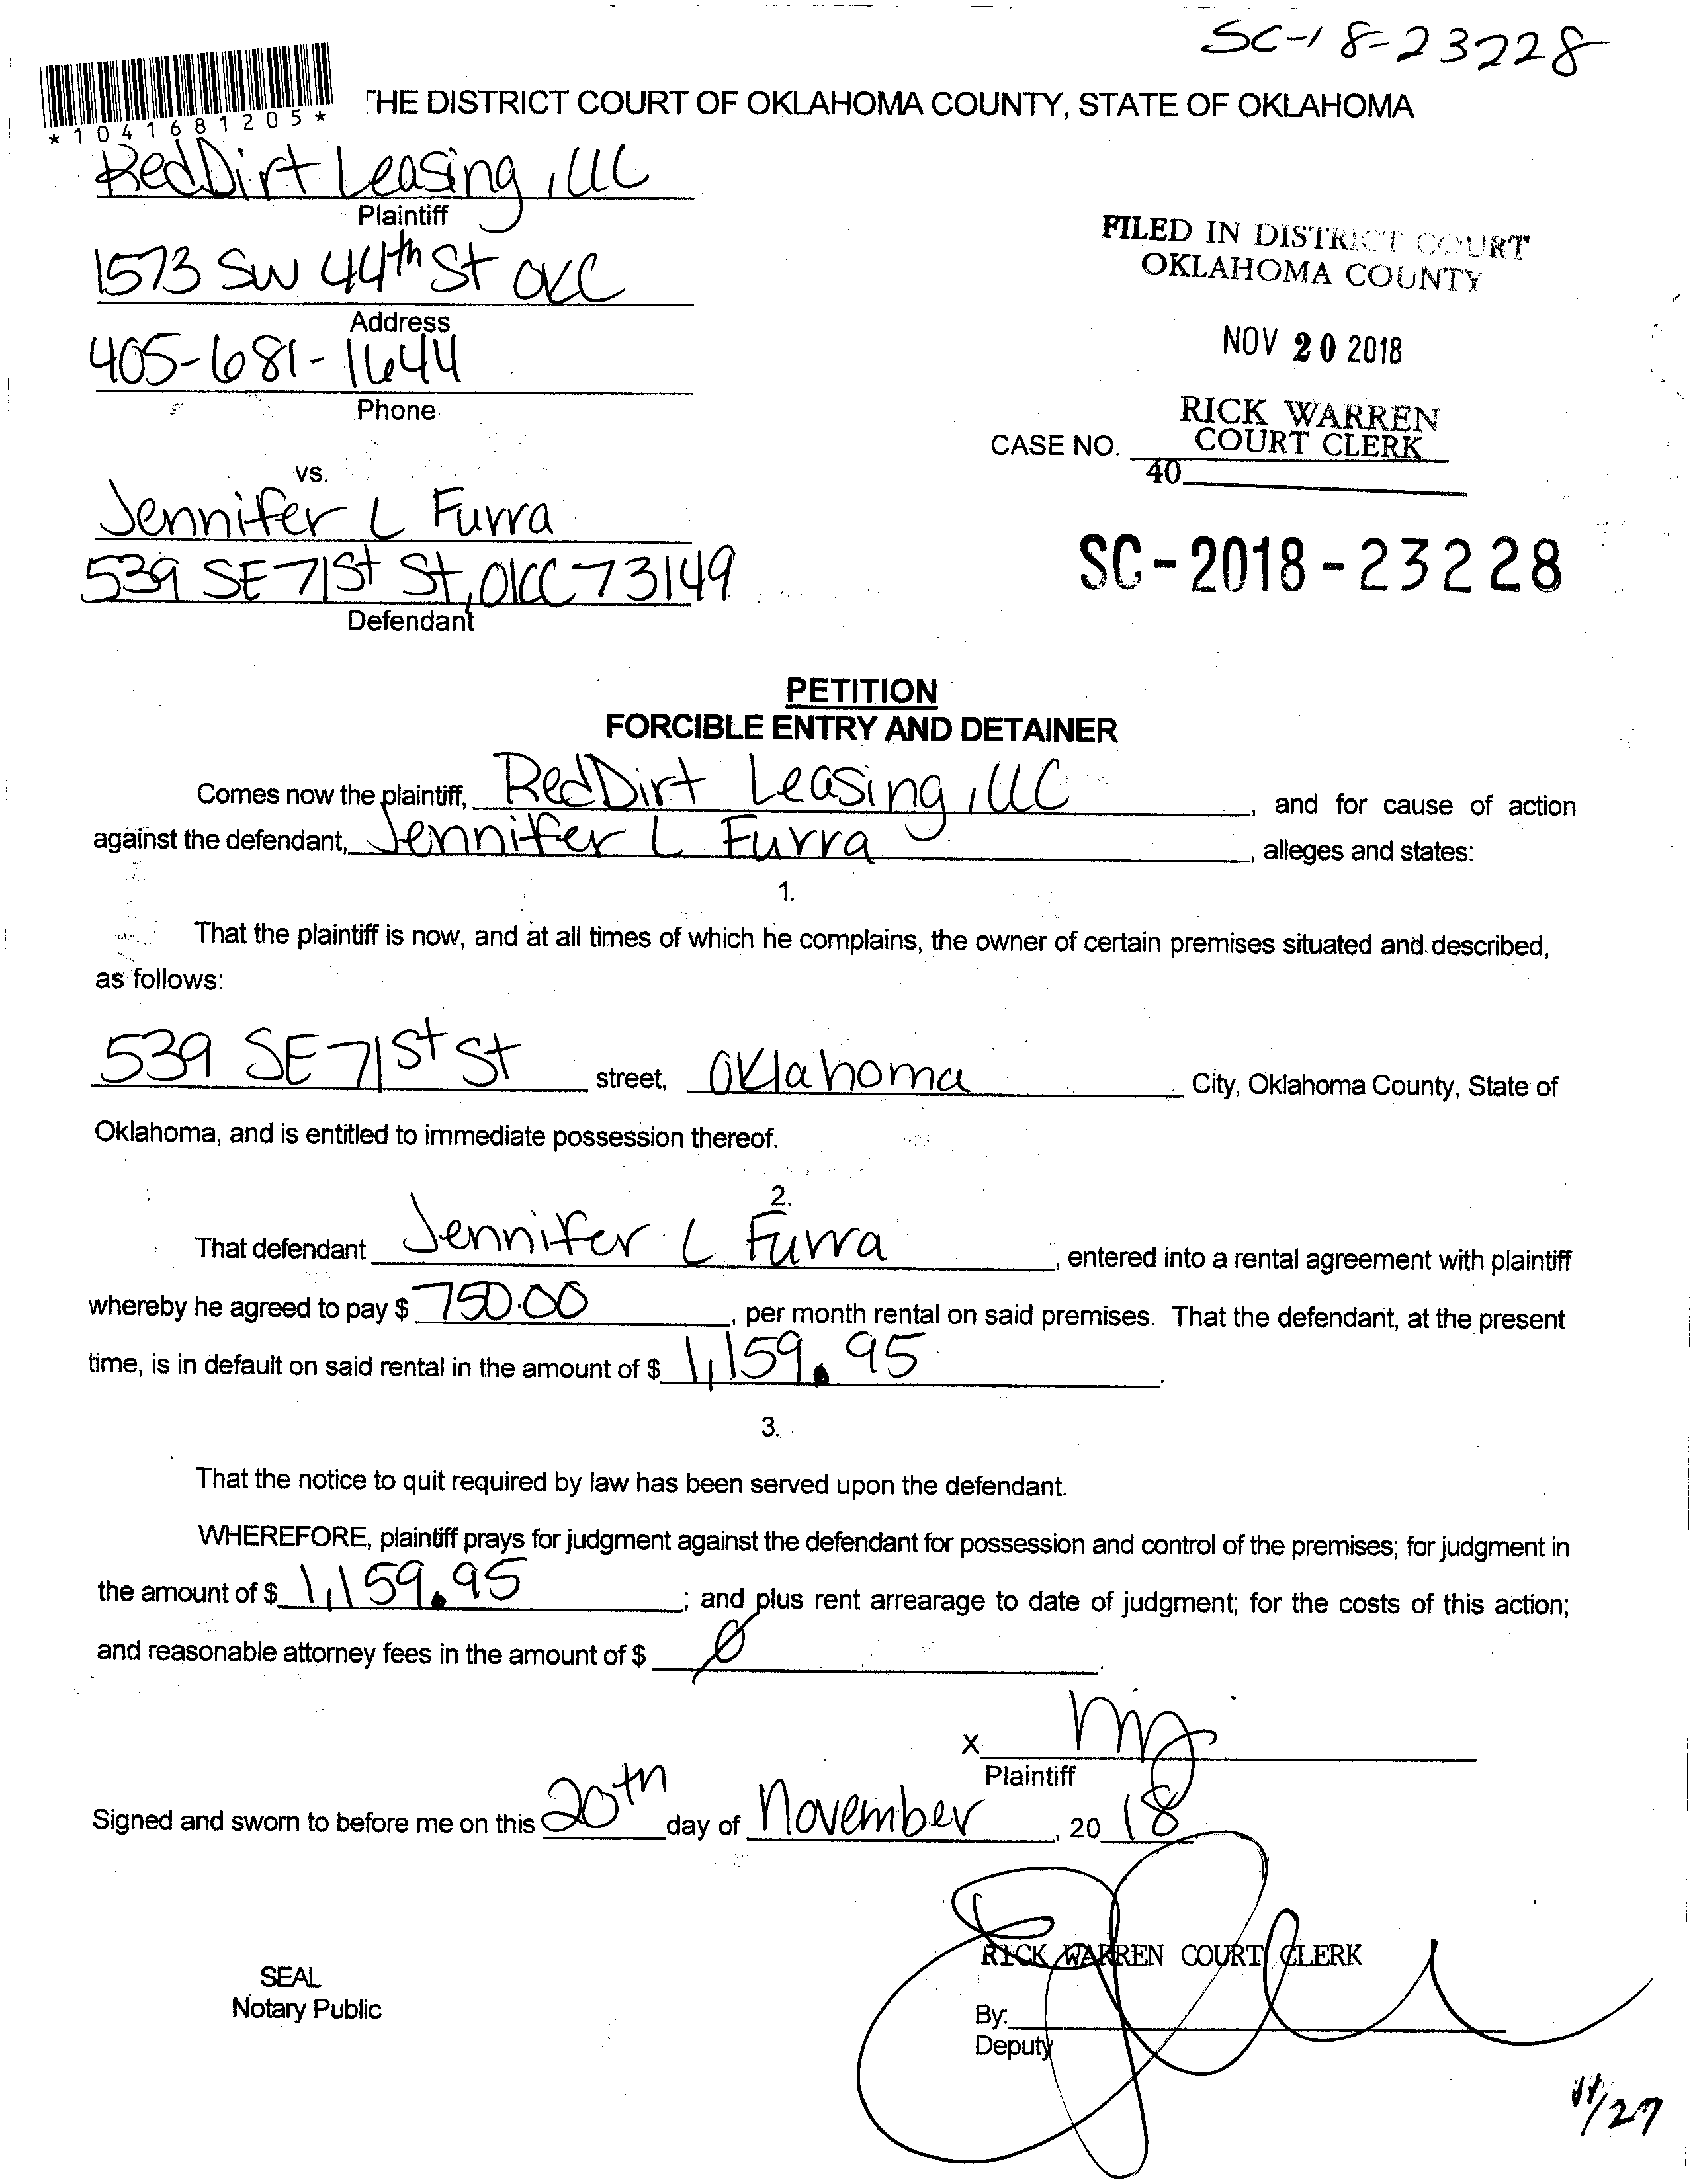 SC-18-23228
*1041681205*
THE DISTRICT COURT OF OKLAHOMA COUNTY, STATE OF OKLAHOMA
RedDirt Leasing, LLC
Plaintiff
1573 SW 44th St OKC
Address
405-681-1644
Phone
FILED IN DISTRICT COURT
OKLAHOMA COUNTY
NOV 20 2018
RICK WARREN
CASE NO. COURT CLERK
40
vs.
Jennifer L Furra
539 SE 71st St, OKC 73149
Defendant
SC-2018-23228
PETITION
FORCIBLE ENTRY AND DETAINER
Comes now the plaintiff, RedDirt Leasing, LLC, and for cause of action
against the defendant, Jennifer L Furra, alleges and states:
1.
That the plaintiff is now, and at all times of which he complains, the owner of certain premises situated and described,
as follows:
539 SE 71st St street, Oklahoma City, Oklahoma County, State of
Oklahoma, and is entitled to immediate possession thereof.
2.
That defendant Jennifer L Furra, entered into a rental agreement with plaintiff
whereby he agreed to pay $ 750.00, per month rental on said premises. That the defendant, at the present
time, is in default on said rental in the amount of $ 1,159.95.
3.
That the notice to quit required by law has been served upon the defendant.
WHEREFORE, plaintiff prays for judgment against the defendant for possession and control of the premises; for judgment in
the amount of $ 1,159.95; and plus rent arrearage to date of judgment; for the costs of this action;
and reasonable attorney fees in the amount of $ Ø.
X
Plaintiff
Signed and sworn to before me on this 20th day of November, 2018
RICK WARREN COURT CLERK
SEAL
Notary Public
By:
Deputy
11/27